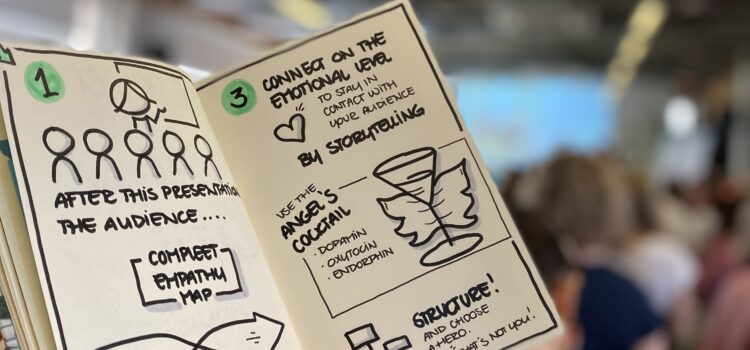 1
AFTER THIS PRESENTATION
THE AUDIENCE....
COMPLEET
EMPATHY
MAP
3
CONNECT ON THE
EMOTIONAL LEVEL
TO STAY IN
CONTACT WITH
YOUR AUDIENCE
BY STORYTELLING
USE THE
ANGEL'S
COCKTAIL
· DOPAMIN
· OXYTOCIN
· ENDORPHIN
STRUCTURE!
AND CHOOSE
A HERO.
THAT'S NOT YOU!